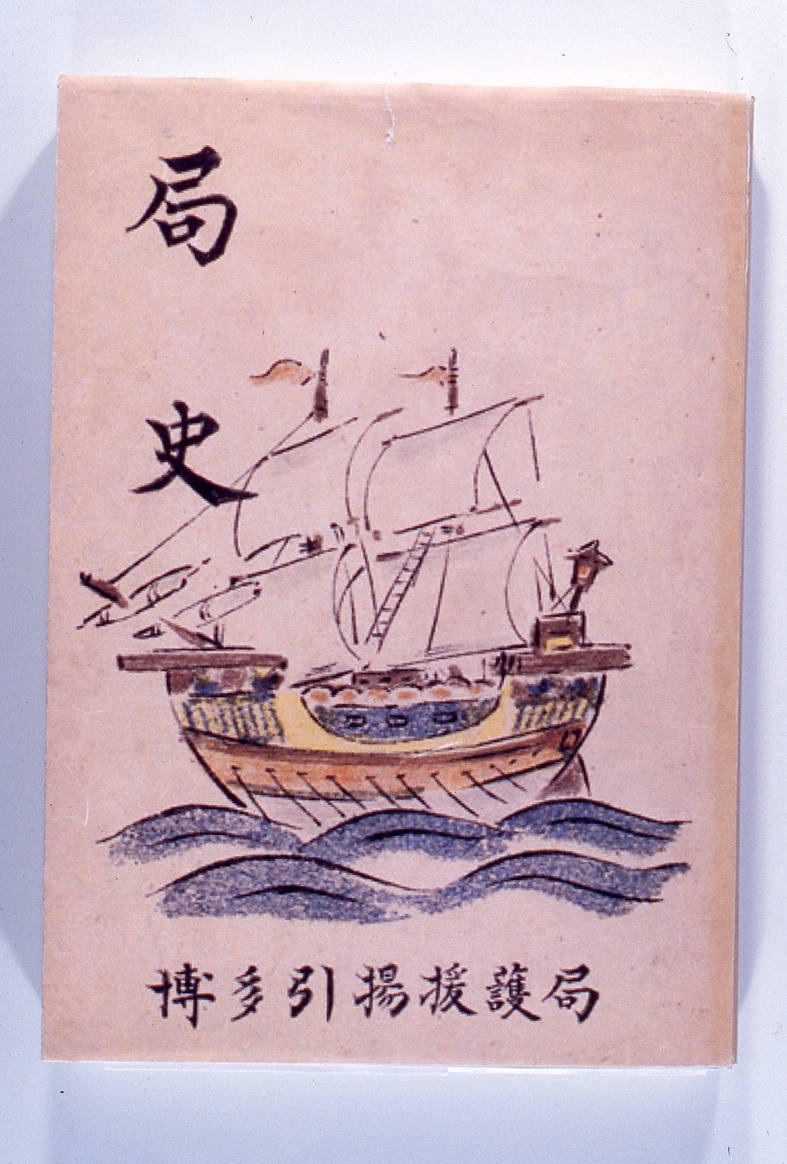 局史
博多引揚援護局